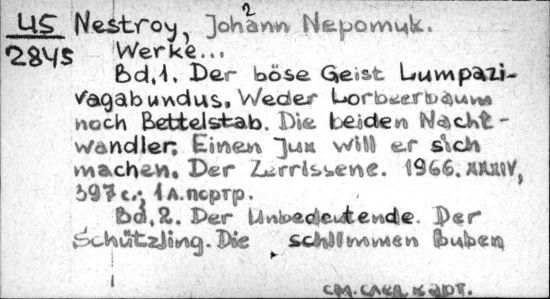 45 Nestroy, Johann Nepomuk.
2
2845 Werke...
Bd.1. Der böse Geist Lumpazi-
vagabundus. Weder Lorbeerbaum
noch Bettelstab. Die beiden Nacht-
wandler. Einen Jux will er sich
machen. Der Zerrissene. 1966. XXXIV,
397 с.; 1 л. портр.
Bd. 2. Der Unbedeutende. Der
Schützling. Die schlimmen Buben
см. след. карт.